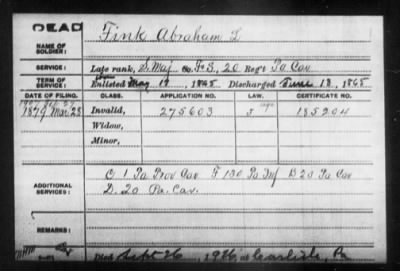 DEAD
NAME OF SOLDIER: Fink Abraham L
SERVICE: Late rank, S. Maj Co. F.S., 20 Reg't Pa Cav
TERM OF SERVICE: Enlisted May 17, 1865 Discharged June 13, 1865
DATE OF FILING. CLASS. APPLICATION NO. LAW. CERTIFICATE NO.
1907 Feb 27
1879 Mar 28 Invalid, 275603 185204
Widow,
Minor,
ADDITIONAL SERVICES: C 1 Pa Prov Cav F 130 Pa Inf B 20 Pa Cav
D. 20 Pa. Cav.
REMARKS:
Died Sept 26, 1926, at Carlisle, Pa